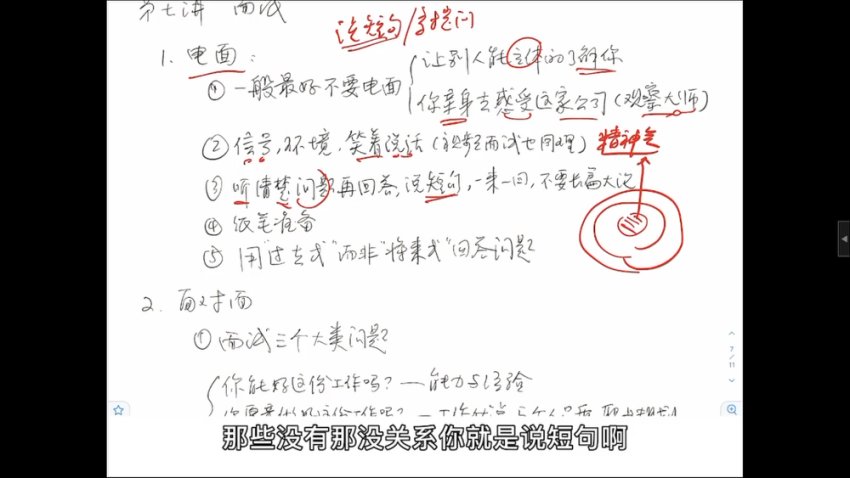 第七讲 面试
说短句/多提问
1. 电面:
① 一般最好不要电面
让别人能立体的了解你
你亲身去感受这家公司(观察大师)
② 信号,环境,笑着说话(视频面试也同理) 精神气
③ 听清楚问题再回答,说短句,一来一回,不要长篇大论
④ 纸笔准备
⑤ 用"过去式"而非"将来式"回答问题
2. 面对面
① 面试三个大类问题
你能好这份工作吗?—能力与经验
7
/
11
那些没有那没关系你就是说短句啊